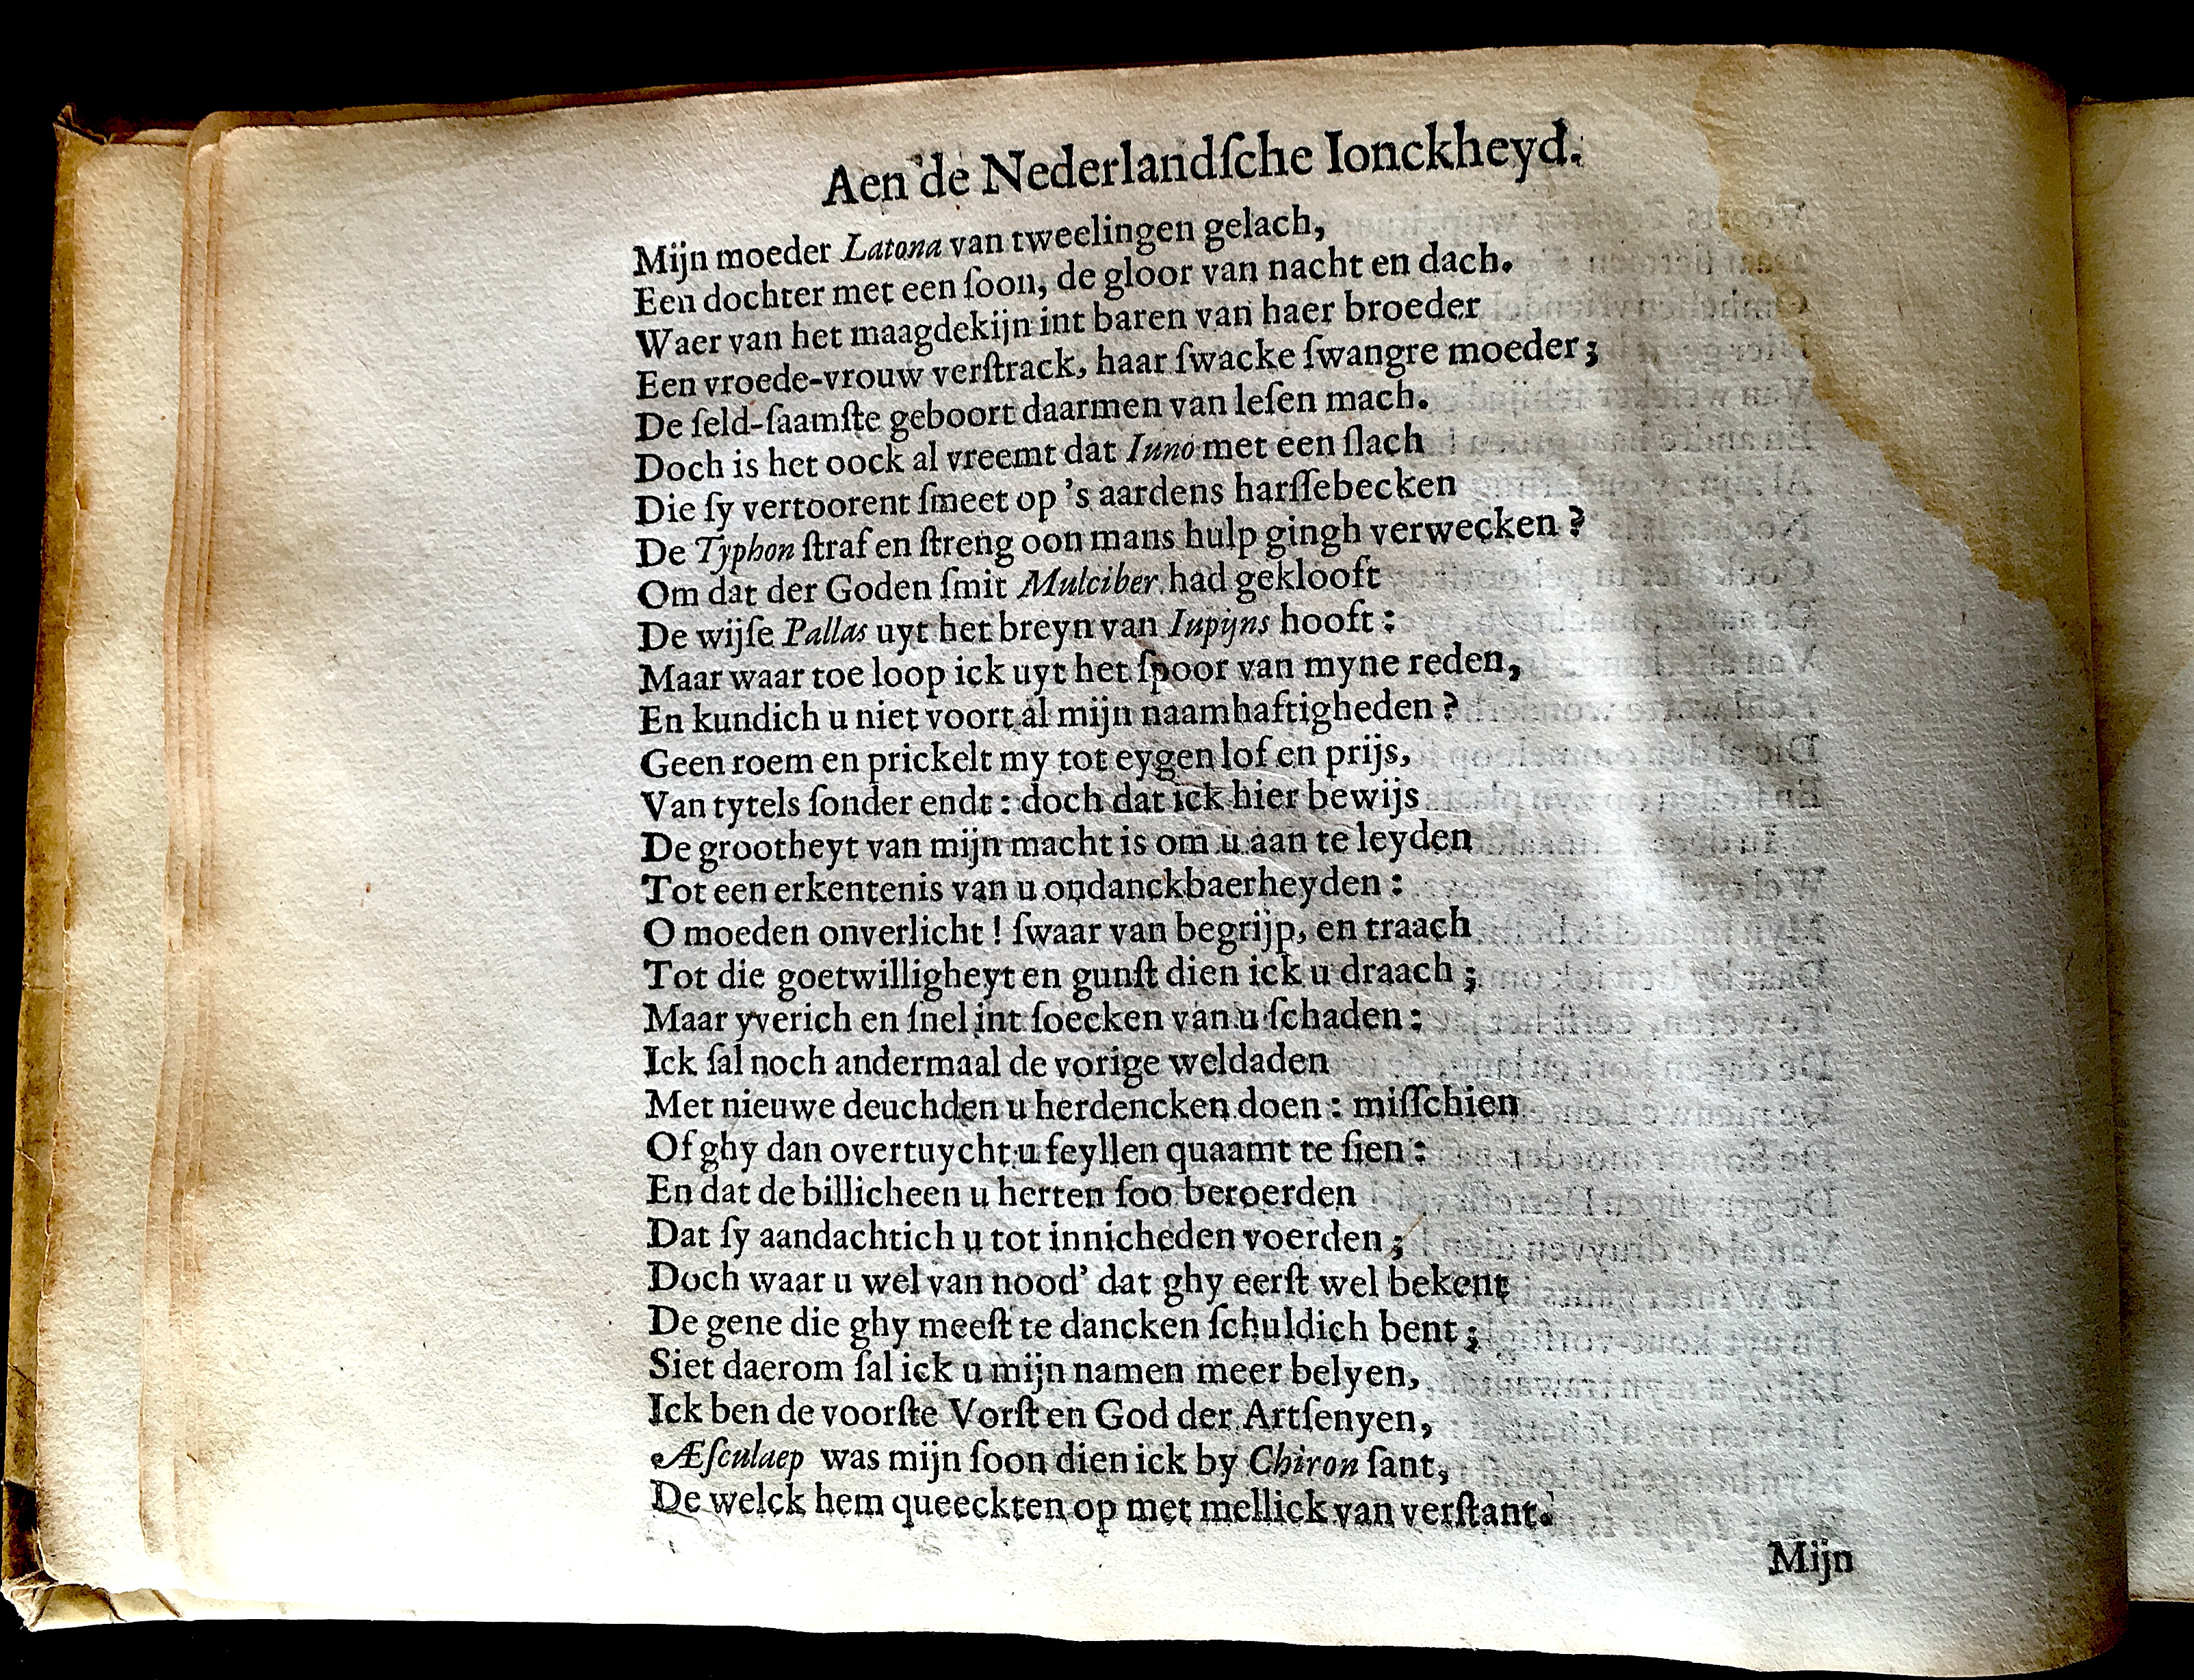 Aen de Nederlandſche Ionckheyd.
Mijn moeder Latona van tweelingen gelach,
Een dochter met een ſoon, de gloor van nacht en dach.
Waer van het maagdekijn int baren van haer broeder
Een vroede-vrouw verſtrack, haar ſwacke ſwangre moeder;
De ſeld-ſaamſte geboort daarmen van leſen mach.
Doch is het oock al vreemt dat Iuno met een ſlach
Die ſy vertoorent ſmeet op 's aardens harſſebecken
De Typhon ſtraf en ſtreng oon mans hulp gingh verwecken ?
Om dat der Goden ſmit Mulciber had geklooft
De wijſe Pallas uyt het breyn van Iupijns hooft :
Maar waar toe loop ick uyt het ſpoor van myne reden,
En kundich u niet voort al mijn naamhaftigheden ?
Geen roem en prickelt my tot eygen lof en prijs,
Van tytels ſonder endt : doch dat ick hier bewijs
De grootheyt van mijn macht is om u aan te leyden
Tot een erkentenis van u ondanckbaerheyden :
O moeden onverlicht ! ſwaar van begrijp, en traach
Tot die goetwilligheyt en gunſt dien ick u draach ;
Maar yverich en ſnel int ſoecken van u ſchaden :
Ick ſal noch andermaal de vorige weldaden
Met nieuwe deuchden u herdencken doen : miſſchien
Of ghy dan overtuycht u feyllen quaamt te ſien :
En dat de billicheen u herten ſoo beroerden
Dat ſy aandachtich u tot innicheden voerden ;
Doch waar u wel van nood' dat ghy eerſt wel bekent
De gene die ghy meeſt te dancken ſchuldich bent ;
Siet daerom ſal ick u mijn namen meer belyen,
Ick ben de voorſte Vorſt en God der Artſenyen,
Æſculaep was mijn ſoon dien ick by Chiron ſant,
De welck hem queeckten op met mellick van verſtant.
Mijn